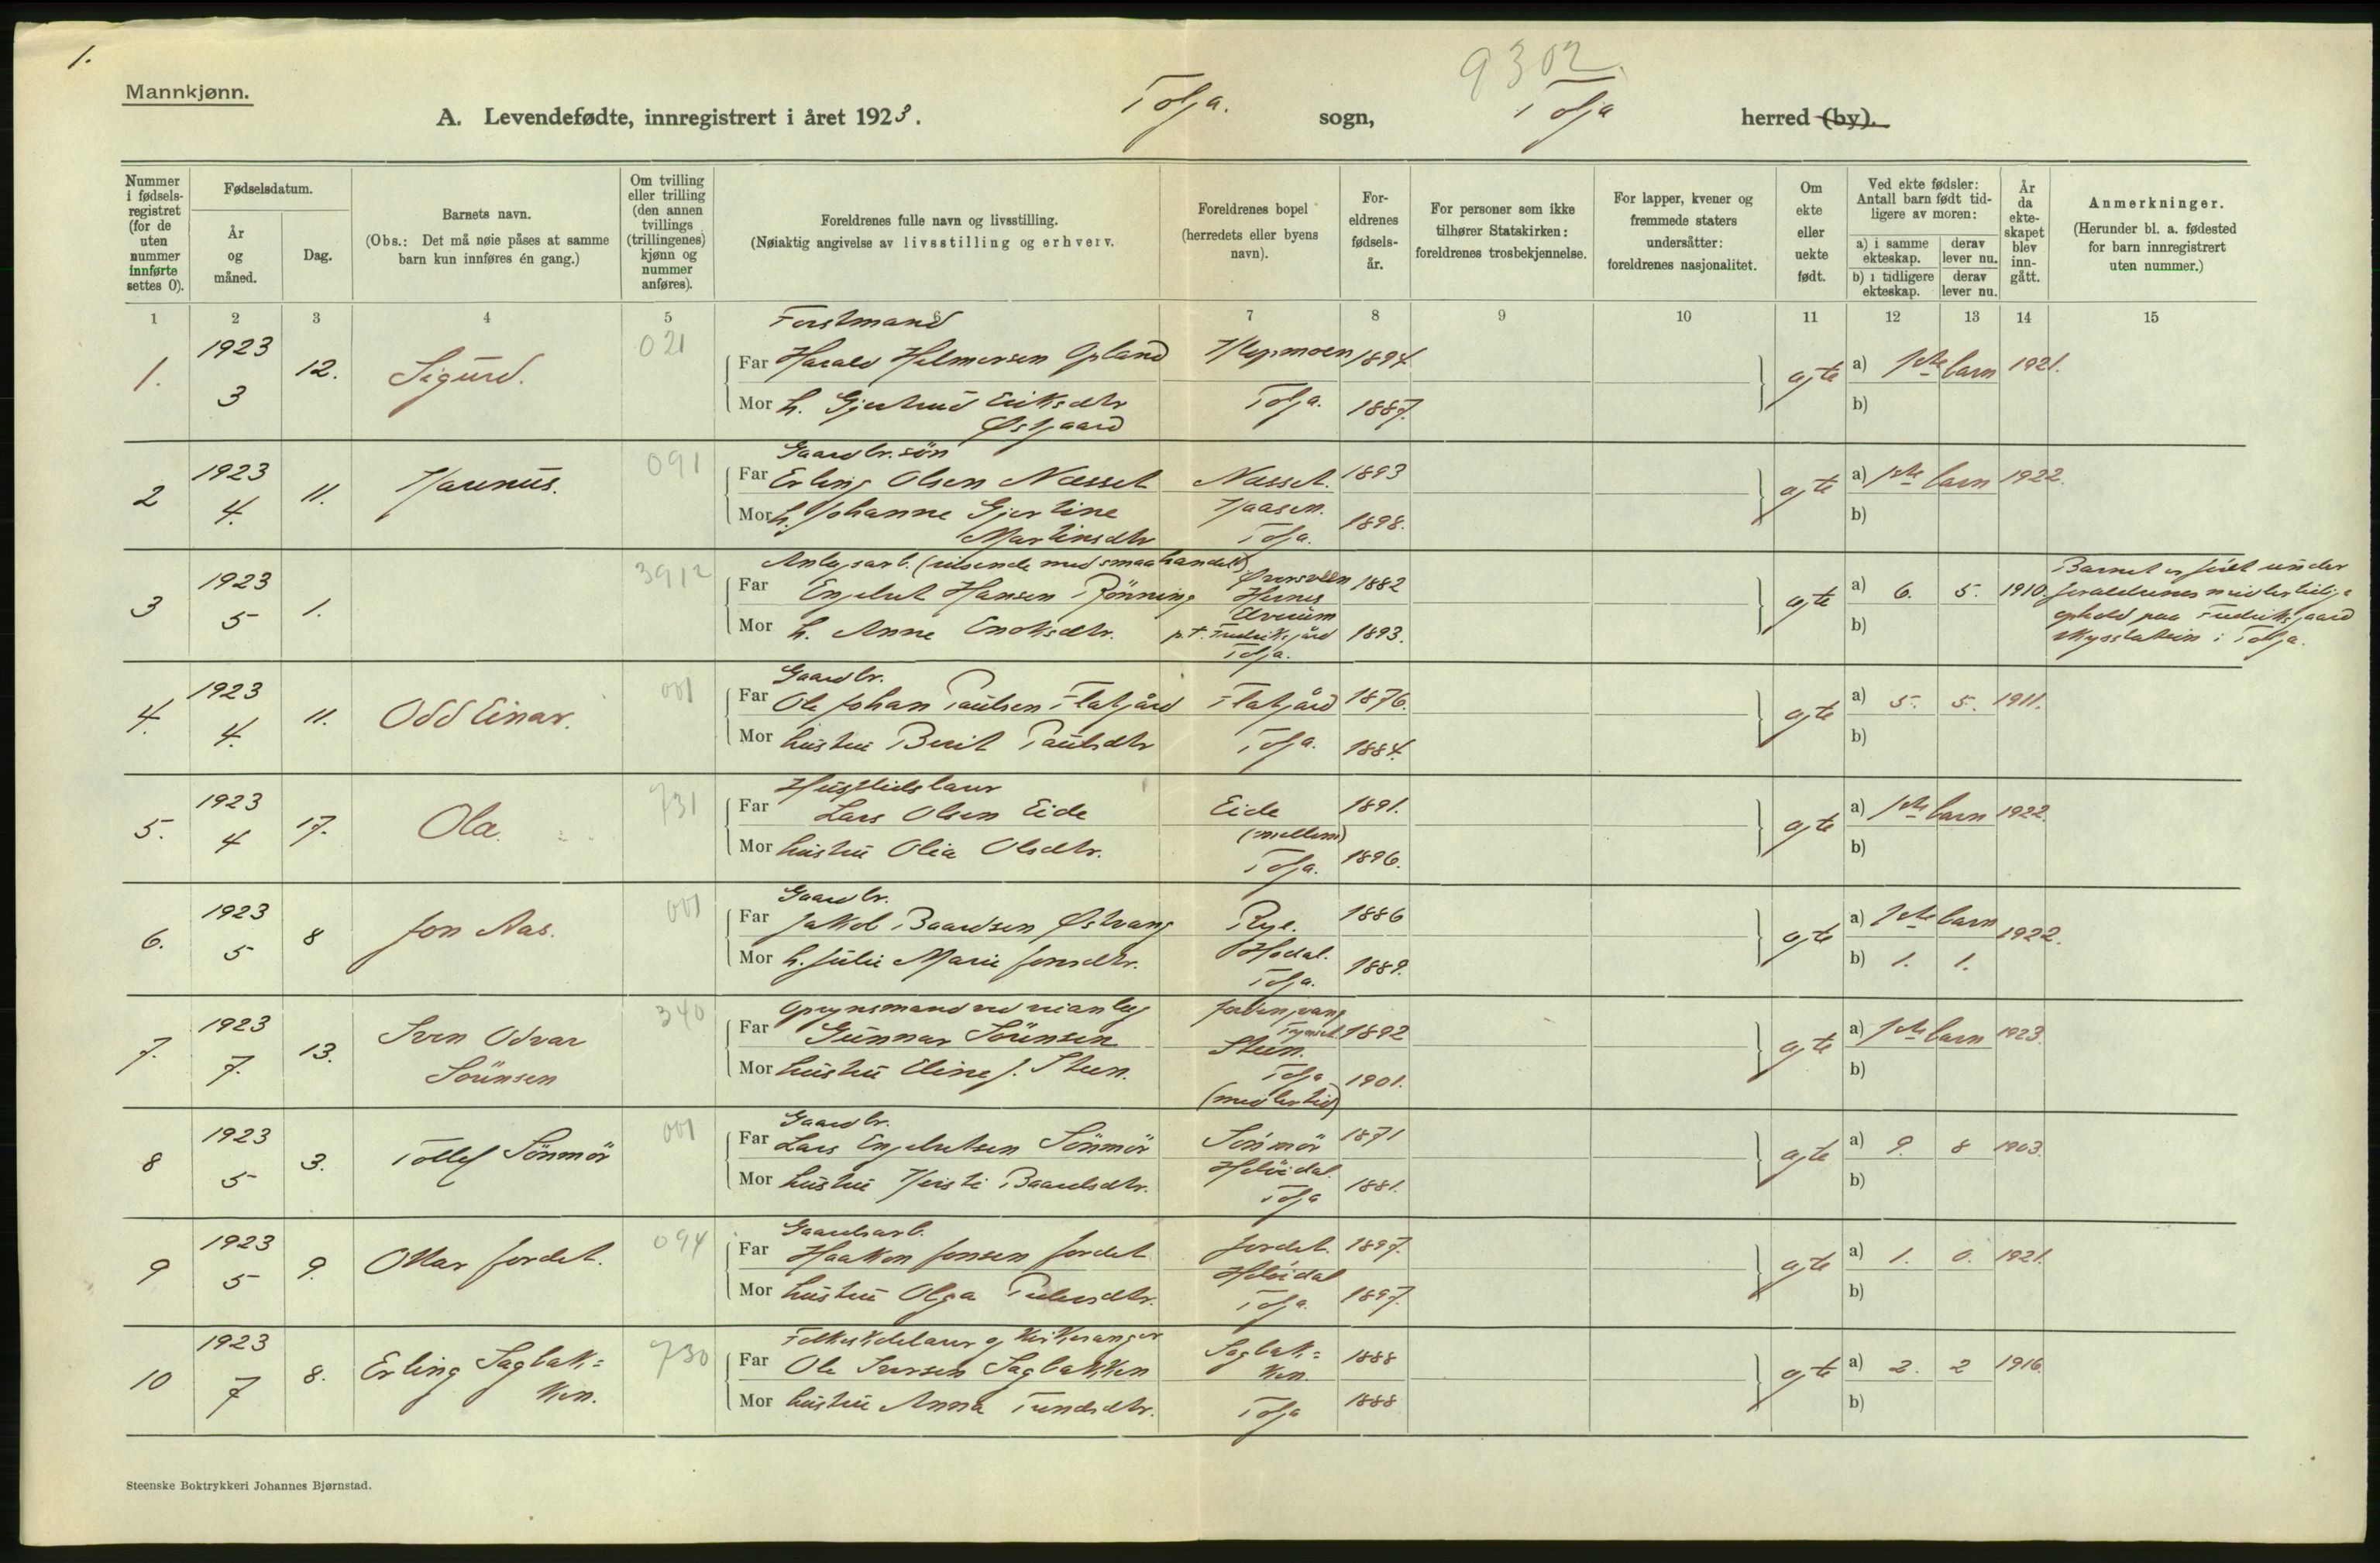 1.
9302
Mannkjønn.
A. Levendefødte, innregistrert i året 1923. Tolga. sogn, Tolga herred (by).
Nummer i fødselsregistret (for de uten nummer innførte settes 0).
Fødselsdatum.
År og måned.
Dag.
Barnets navn.
(Obs.: Det må nøie påses at samme barn kun innføres én gang.)
Om tvilling eller trilling (den annen tvillings (trillingenes) kjønn og nummer anføres).
Foreldrenes fulle navn og livsstilling.
(Nøiaktig angivelse av livsstilling og erhverv.
Foreldrenes bopel (herredets eller byens navn).
Foreldrenes fødselsår.
For personer som ikke tilhører Statskirken: foreldrenes trosbekjennelse.
For lapper, kvener og fremmede staters undersåtter: foreldrenes nasjonalitet.
Om ekte eller uekte født.
Ved ekte fødsler: Antall barn født tidligere av moren:
a) i samme ekteskap. derav lever nu.
b) i tidligere ekteskap. derav lever nu.
År da ekteskapet blev inngått.
Anmerkninger.
(Herunder bl. a. fødested for barn innregistrert uten nummer.)
1 2 3 4 5 6 7 8 9 10 11 12 13 14 15
Forstmand
1. 1923 3 12. Sigurd. 021
Far Harald Helmersen Opland 1894 ægte a) 1ste barn 1921.
Mor h. Gjertrud Eriksdtr Østgaard Tolga. 1887. b)
Gaardbr. søn
2 1923 4. 11. Magnus. 091
Far Erling Olsen Næsset Næsset. 1893 ægte a) 1ste barn 1922.
Mor h. Johanne Gjertine Martinsdtr Vaasen. Tolga. 1898. b)
Anlegsarb. (reisende med smaahandel)
3 1923 5 1. 3912
Far Engebret Hansen Rönning Hernes Elverum 1882 ægte a) 6. 5. 1910.
Mor h. Anne Enoksdtr. p.t. Fredriksgård Tolga. 1893. b)
Barnet er født under
foreldrenes midlertidige
ophold paa Fredriksgaard
skysstation i Tolga.
Gaardbr.
4. 1923 4. 11. Odd Einar. 001
Far Ole Johan Paulsen Flatgård Flatgård 1876. ægte a) 5. 5. 1911.
Mor hustru Berit Paulsdtr Tolga. 1884. b)
Husflidslærer
5. 1923 4 17. Ola. 731
Far Lars Olsen Eide Eide (mellem) 1891. ægte a) 1ste barn 1922.
Mor hustru Olia Olsdtr. Tolga. 1896. b)
Gaardbr.
6. 1923 5 8 Jon Aas. 001
Far Jakob Baardsen Østvang Rye. 1886 ægte a) 1ste barn 1922.
Mor h. Julie Marie Jonsdtr. Hodal. Tolga. 1889. b) 1. 1.
Opsynsmand ved veianleg
7. 1923 7. 13. Sven Odvar Sörensen 340
Far Gunnar Sörensen Tynset 1892 ægte a) 1ste barn 1923.
Mor hustru Eline J. Steen. Steen. Tolga (midlertid) 1901. b)
Gaardbr.
8 1923 5 3. Tollef Sönmör 001
Far Lars Engebretsen Sönmör Sönmör 1871 ægte a) 9. 8 1903.
Mor hustru Kristi Baardsdtr. Tolga 1881. b)
Gaardsarb.
9 1923 5 9. Ottar Jordet. 094
Far Haakon Jonsen Jordet Jordet. 1897. ægte a) 1. 0. 1921.
Mor hustru Olga Pedersdtr. Tolga. 1897. b)
Folkeskolelærer og Kirkesanger
10 1923 7 8. Erling Sagbakken. 730
Far Ole Iversen Sagbakken Sagbakken. 1888 ægte a) 2. 2 1916.
Mor hustru Anna Trondsdtr. Tolga 1888 b)
Steenske Boktrykkeri Johannes Bjørnstad.